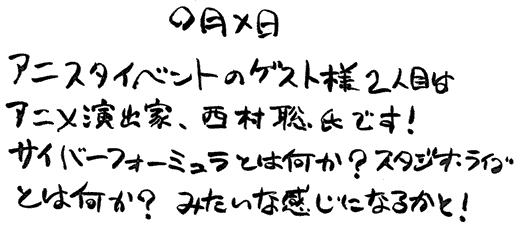 ○月×日
アニスタイベントのゲスト様2人目は
アニメ演出家、西村聡氏です!
サイバーフォーミュラとは何か?スタジオ・ライブ
とは何か? みたいな感じになるかと!